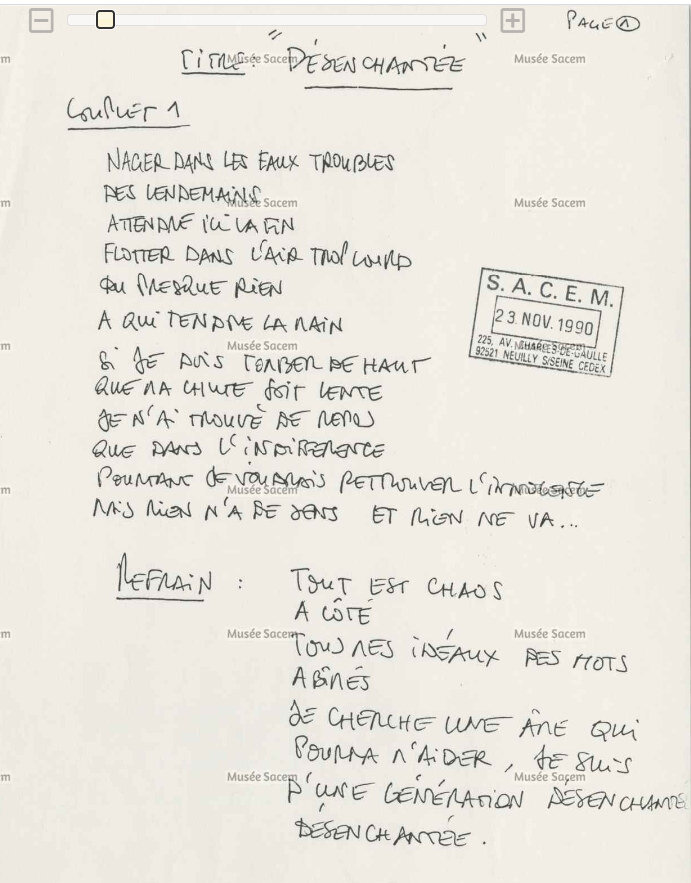 PAGE 1
TITRE: "DÉSENCHANTÉE"
COUPLET 1
NAGER DANS LES EAUX TROUBLES
DES LENDEMAINS
ATTENDRE ICI LA FIN
FLOTTER DANS L'AIR TROP LOURD
DU PRESQUE RIEN
A QUI TENDRE LA MAIN
SI JE DOIS TOMBER DE HAUT
QUE MA CHUTE SOIT LENTE
JE N'AI TROUVÉ DE REPOS
QUE DANS L'INDIFERENCE
POURTANT JE VOUDRAIS RETTROUVER L'INNOCENCE
MAIS RIEN N'A DE SENS ET RIEN NE VA...
S. A. C. E. M.
23 NOV. 1990
225, AV. CHARLES-DE-GAULLE
92521 NEUILLY S/SEINE CEDEX
REFRAIN : TOUT EST CHAOS
A CÔTÉ
TOUS MES IDÉAUX DES MOTS
ABÎMÉS
JE CHERCHE UNE ÂME QUI
POURRA M'AIDER, JE SUIS
D'UNE GÉNÉRATION DÉSENCHANTÉE
DÉSENCHANTÉE.
Musée Sacem